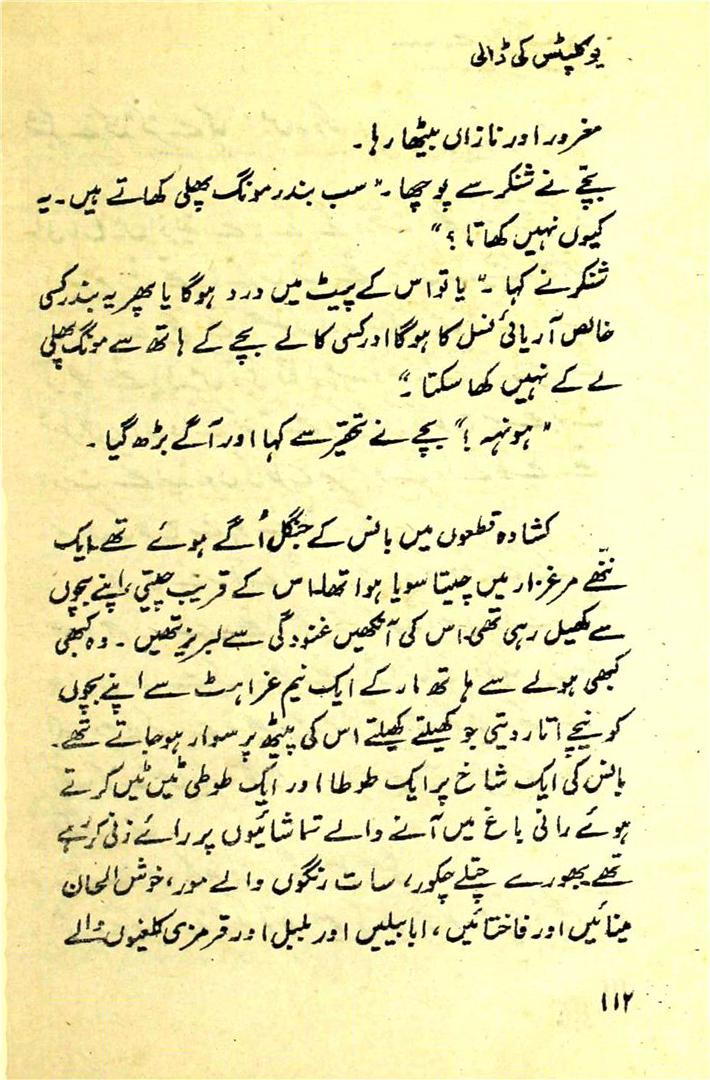 یوکلپٹس کی ڈالی
مغرور اور نازاں بیٹھا رہا۔
بچّے نے شنکر سے پوچھا۔ "سب بندر مونگ پھلی کھاتے ہیں۔ یہ
کیوں نہیں کھاتا ؟"
شنکر نے کہا۔ "یا تو اس کے پیٹ میں درد ہوگا یا پھر یہ بندر کسی
خالص آریائی نسل کا ہوگا اور کسی کالے بچے کے ہاتھ سے مونگ پھلی
لے کے نہیں کھا سکتا۔"
"ہونہہ !" بچے نے تحیّر سے کہا اور آگے بڑھ گیا۔
کشادہ قطعوں میں بانس کے جنگل اُگے ہوئے تھے۔ ایک
ننّھے مرغزار میں چیتا سویا ہوا تھا۔ اس کے قریب چیتی، اپنے بچوں
سے کھیل رہی تھی۔ اس کی آنکھیں غنودگی سے لبریز تھیں۔ وہ کبھی
کبھی ہولے سے ہاتھ مار کے ایک نیم غراہٹ سے اپنے بچوں
کو نیچے اتار دیتی جو کھیلتے کھیلتے اس کی پیٹھ پر سوار ہو جاتے تھے۔
بانس کی ایک شاخ پر ایک طوطا اور ایک طوطی ٹیں ٹیں کرتے
ہوئے رانی باغ میں آنے والے تماشائیوں پر رائے زنی کر رہے
تھے۔ بھورے چتلے چکور، سات رنگوں والے مور، خوش الحان
مینائیں اور فاختائیں، ابابیلیں اور بلبل اور قرمزی کلغیوں والے
۱۱۲